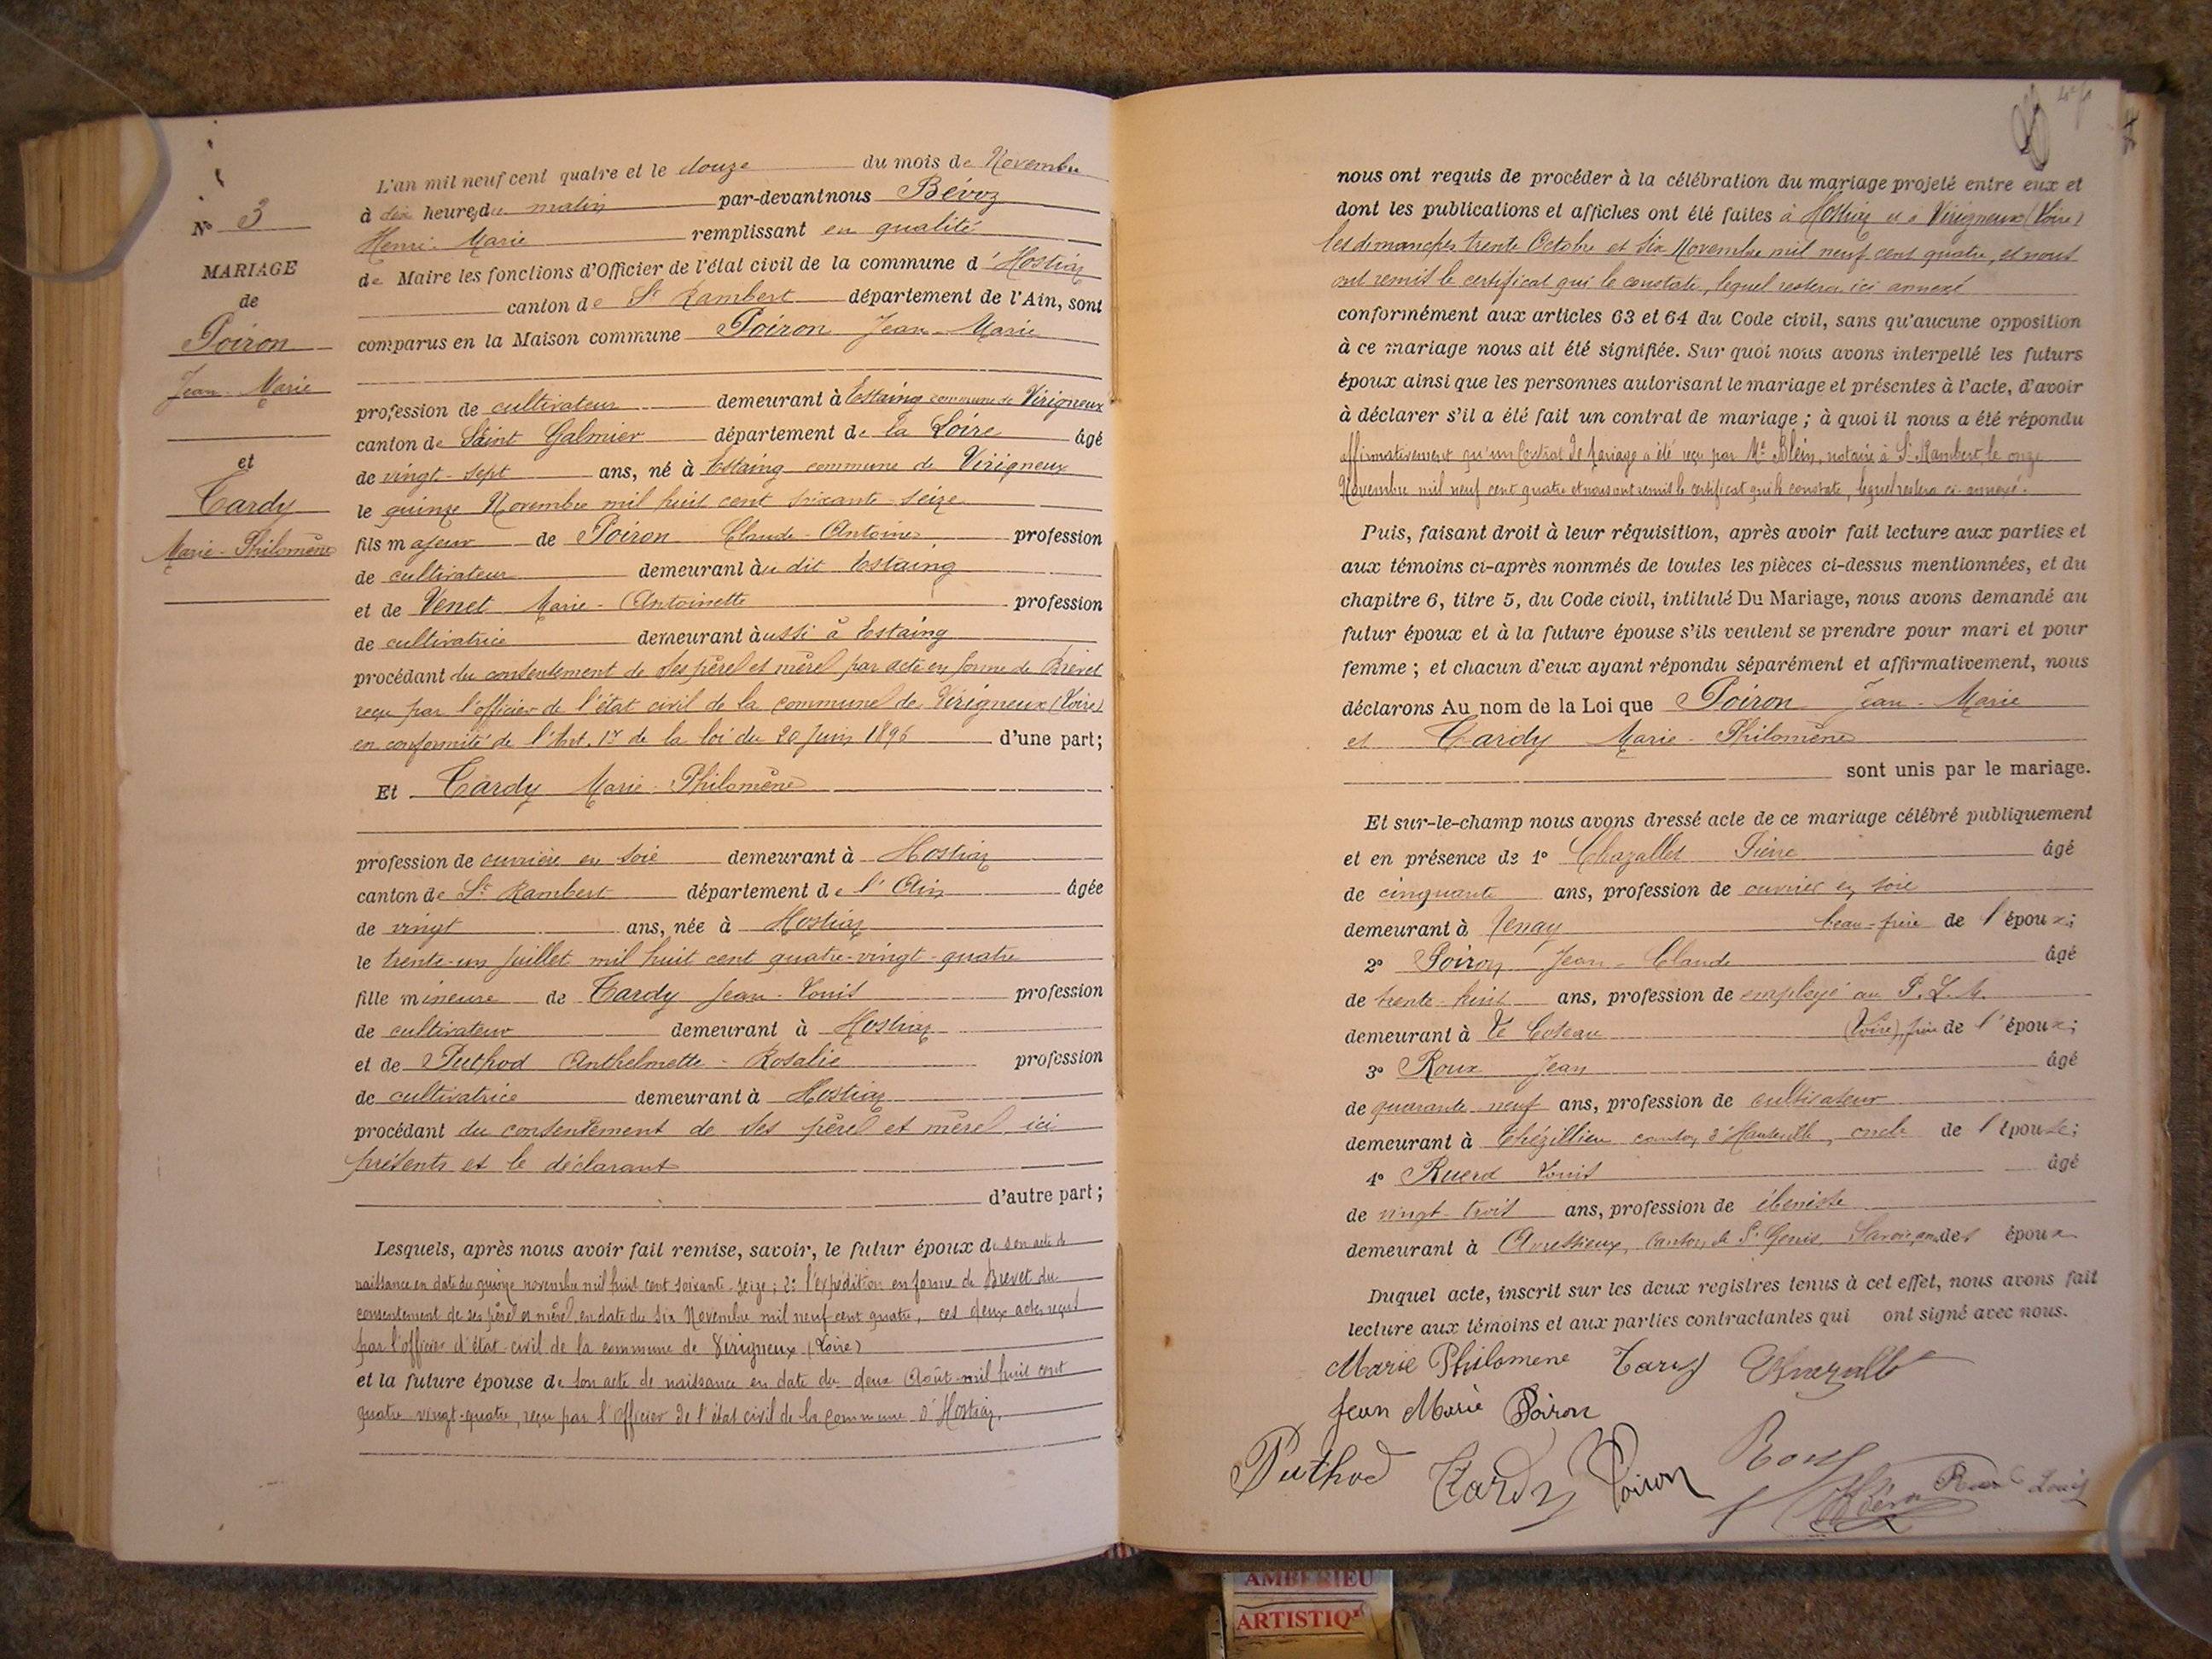 N° 3
MARIAGE
de
Poiron
Jean-Marie
et
Tardy
Marie-Philomène
L'an mil neuf cent quatre et le douze du mois de Novembre
à dix heures du matin par-devant nous Bévoz
Henri-Marie remplissant en qualité
de Maire les fonctions d'Officier de l'état civil de la commune d'Hostiaz
canton de St Rambert département de l'Ain, sont
comparus en la Maison commune Poiron Jean-Marie
profession de cultivateur demeurant à Estaing commune de Virigneux
canton de Saint Galmier département de la Loire âgé
de vingt-sept ans, né à Estaing commune de Virigneux
le quinze Novembre mil huit cent soixante-seize
fils majeur de Poiron Claude-Antoine profession
de cultivateur demeurant au dit Estaing
et de Venet Marie-Antoinette profession
de cultivatrice demeurant aussi à Estaing
procédant du consentement de ses père et mère par acte en forme de Brevet
reçu par l'officier de l'état civil de la commune de Virigneux (Loire)
en conformité de l'Art. 1er de la loi du 20 Juin 1896 d'une part;
Et Tardy Marie-Philomène
profession de ouvrière en soie demeurant à Hostiaz
canton de St Rambert département de l'Ain âgée
de vingt ans, née à Hostiaz
le trente-un juillet mil huit cent quatre-vingt-quatre
fille mineure de Tardy Jean-Louis profession
de cultivateur demeurant à Hostiaz
et de Puthod Anthelmette-Rosalie profession
de cultivatrice demeurant à Hostiaz
procédant du consentement de ses père et mère ici
présents et le déclarant
d'autre part;
Lesquels, après nous avoir fait remise, savoir, le futur époux de son acte de
naissance en date du quinze novembre mil huit cent soixante-seize; 2° l'expédition en forme de Brevet du
consentement de ses père et mère, en date du six Novembre mil neuf cent quatre, ces deux actes reçus
par l'officier d'état-civil de la commune de Virigneux (Loire)
et la future épouse de son acte de naissance en date du deux Août mil huit cent
quatre vingt-quatre, reçu par l'Officier de l'état civil de la commune d'Hostiaz.
nous ont requis de procéder à la célébration du mariage projeté entre eux et
dont les publications et affiches ont été faites à Hostiaz et à Virigneux (Loire)
les dimanches trente Octobre et six Novembre mil neuf cent quatre, et nous
ont remis le certificat qui le constate, lequel restera ici annexé
conformément aux articles 63 et 64 du Code civil, sans qu'aucune opposition
à ce mariage nous ait été signifiée. Sur quoi nous avons interpellé les futurs
époux ainsi que les personnes autorisant le mariage et présentes à l'acte, d'avoir
à déclarer s'il a été fait un contrat de mariage; à quoi il nous a été répondu
affirmativement qu'un Contrat de Mariage a été reçu par Me Blein, notaire à St Rambert, le onze
Novembre mil neuf cent quatre et nous ont remis le certificat qui le constate, lequel restera ci-annexé.
Puis, faisant droit à leur réquisition, après avoir fait lecture aux parties et
aux témoins ci-après nommés de toutes les pièces ci-dessus mentionnées, et du
chapitre 6, titre 5, du Code civil, intitulé Du Mariage, nous avons demandé au
futur époux et à la future épouse s'ils veulent se prendre pour mari et pour
femme; et chacun d'eux ayant répondu séparément et affirmativement, nous
déclarons Au nom de la Loi que Poiron Jean-Marie
et Tardy Marie-Philomène
sont unis par le mariage.
Et sur-le-champ nous avons dressé acte de ce mariage célébré publiquement
et en présence de 1° Chazallet Pierre âgé
de cinquante ans, profession de ouvrier en soie
demeurant à Tenay beau-frère de l'époux;
2° Poiron Jean-Claude âgé
de trente-huit ans, profession de employé au P. L. M.
demeurant à Le Coteau (Loire), frère de l'époux;
3° Roux Jean âgé
de quarante-neuf ans, profession de cultivateur
demeurant à Thézillieu canton d'Hauteville, oncle de l'épouse;
4° Ruerd Louis âgé
de vingt-trois ans, profession de ébéniste
demeurant à Avressieux, canton de St Genis, Savoie, ami des époux
Duquel acte, inscrit sur les deux registres tenus à cet effet, nous avons fait
lecture aux témoins et aux parties contractantes qui ont signé avec nous.
Marie Philomene Tardy Chazallet
Jean Marie Poiron
Puthod Tardy Poiron Roux
Louis
AMBERIEU
ARTISTIQ